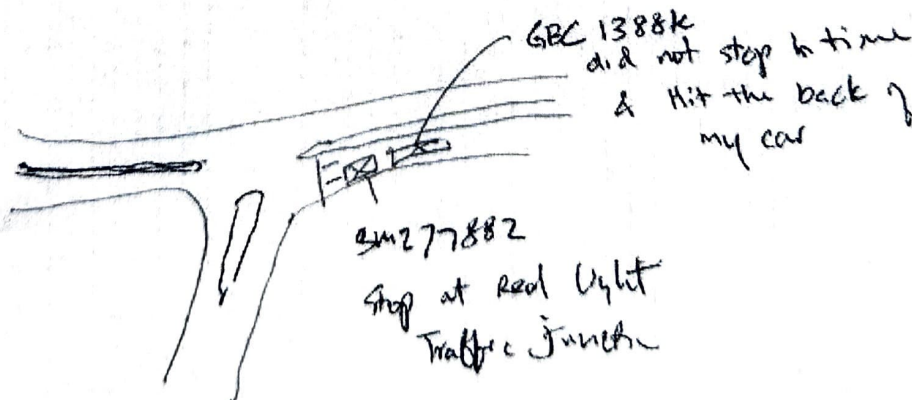 GBC 1388K
did not stop in time
& Hit the back of
my car
SMZ7788Z
Stop at Red Light
Traffic Junction